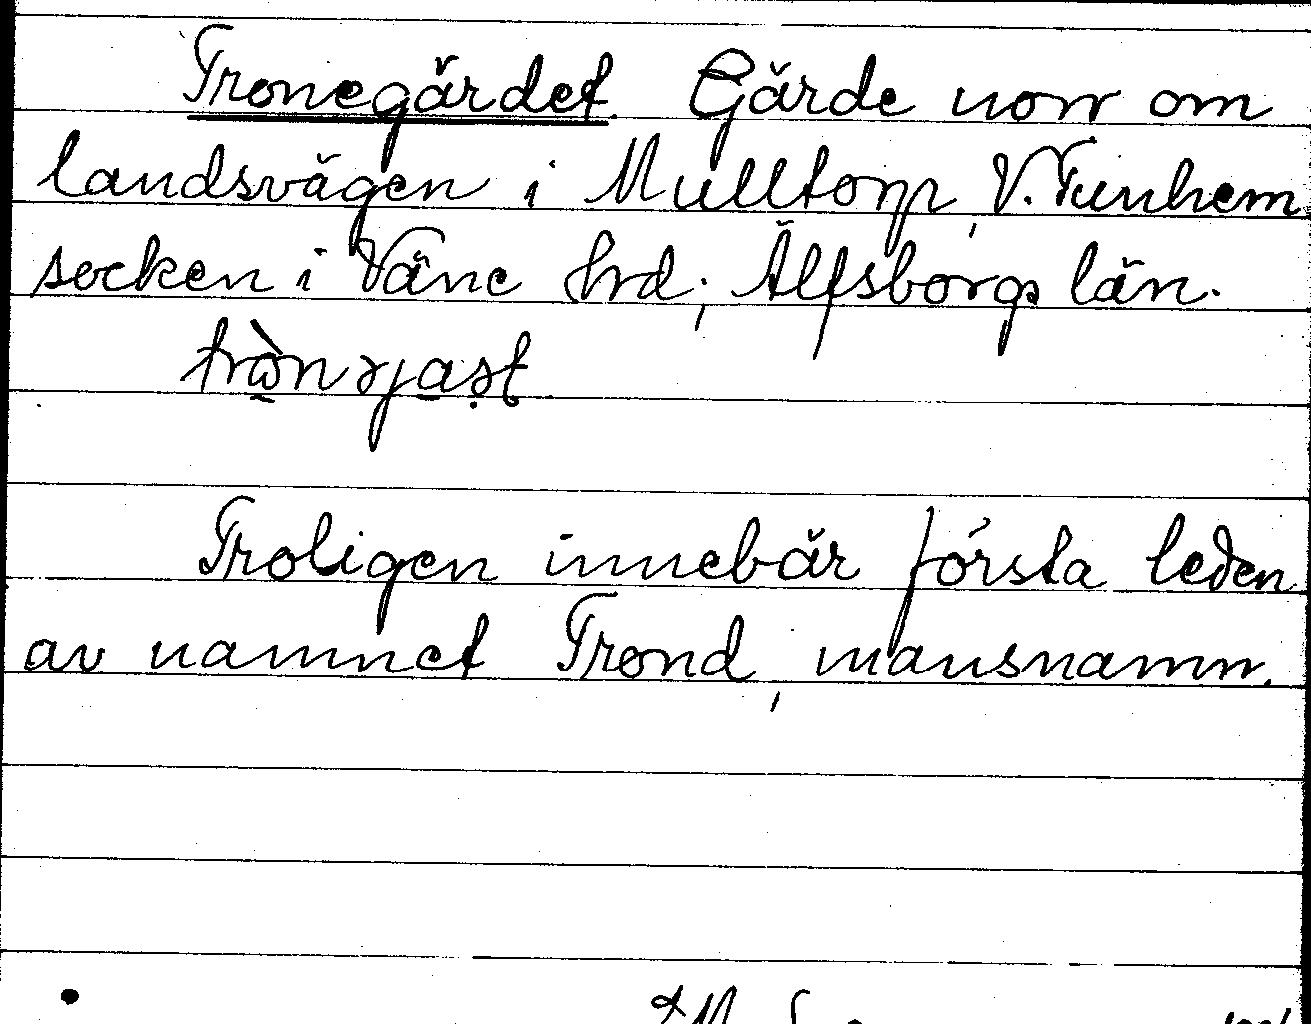 Tronegärdet. Gärde norr om
landsvägen i Mulltorp, V. Tunhem
socken i Väne hrd; Älfsborgs län.
Troligen innebär första leden
av namnet Trond, mansnamn.